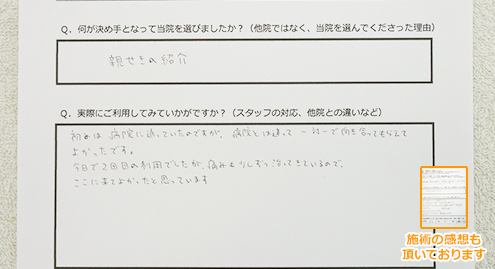 Q．何が決め手となって当院を選びましたか？（他院ではなく、当院を選んでくださった理由）
親せきの紹介
Q．実際にご利用してみていかがですか？（スタッフの対応、他院との違いなど）
初めは病院に通っていたのですが、病院とは違って一対一で向き合ってもらえて
よかったです。
今日で2回目の利用でしたが、痛みも少しずつ治ってきているので、
ここに来てよかったと思っています
施術の感想も
頂いております